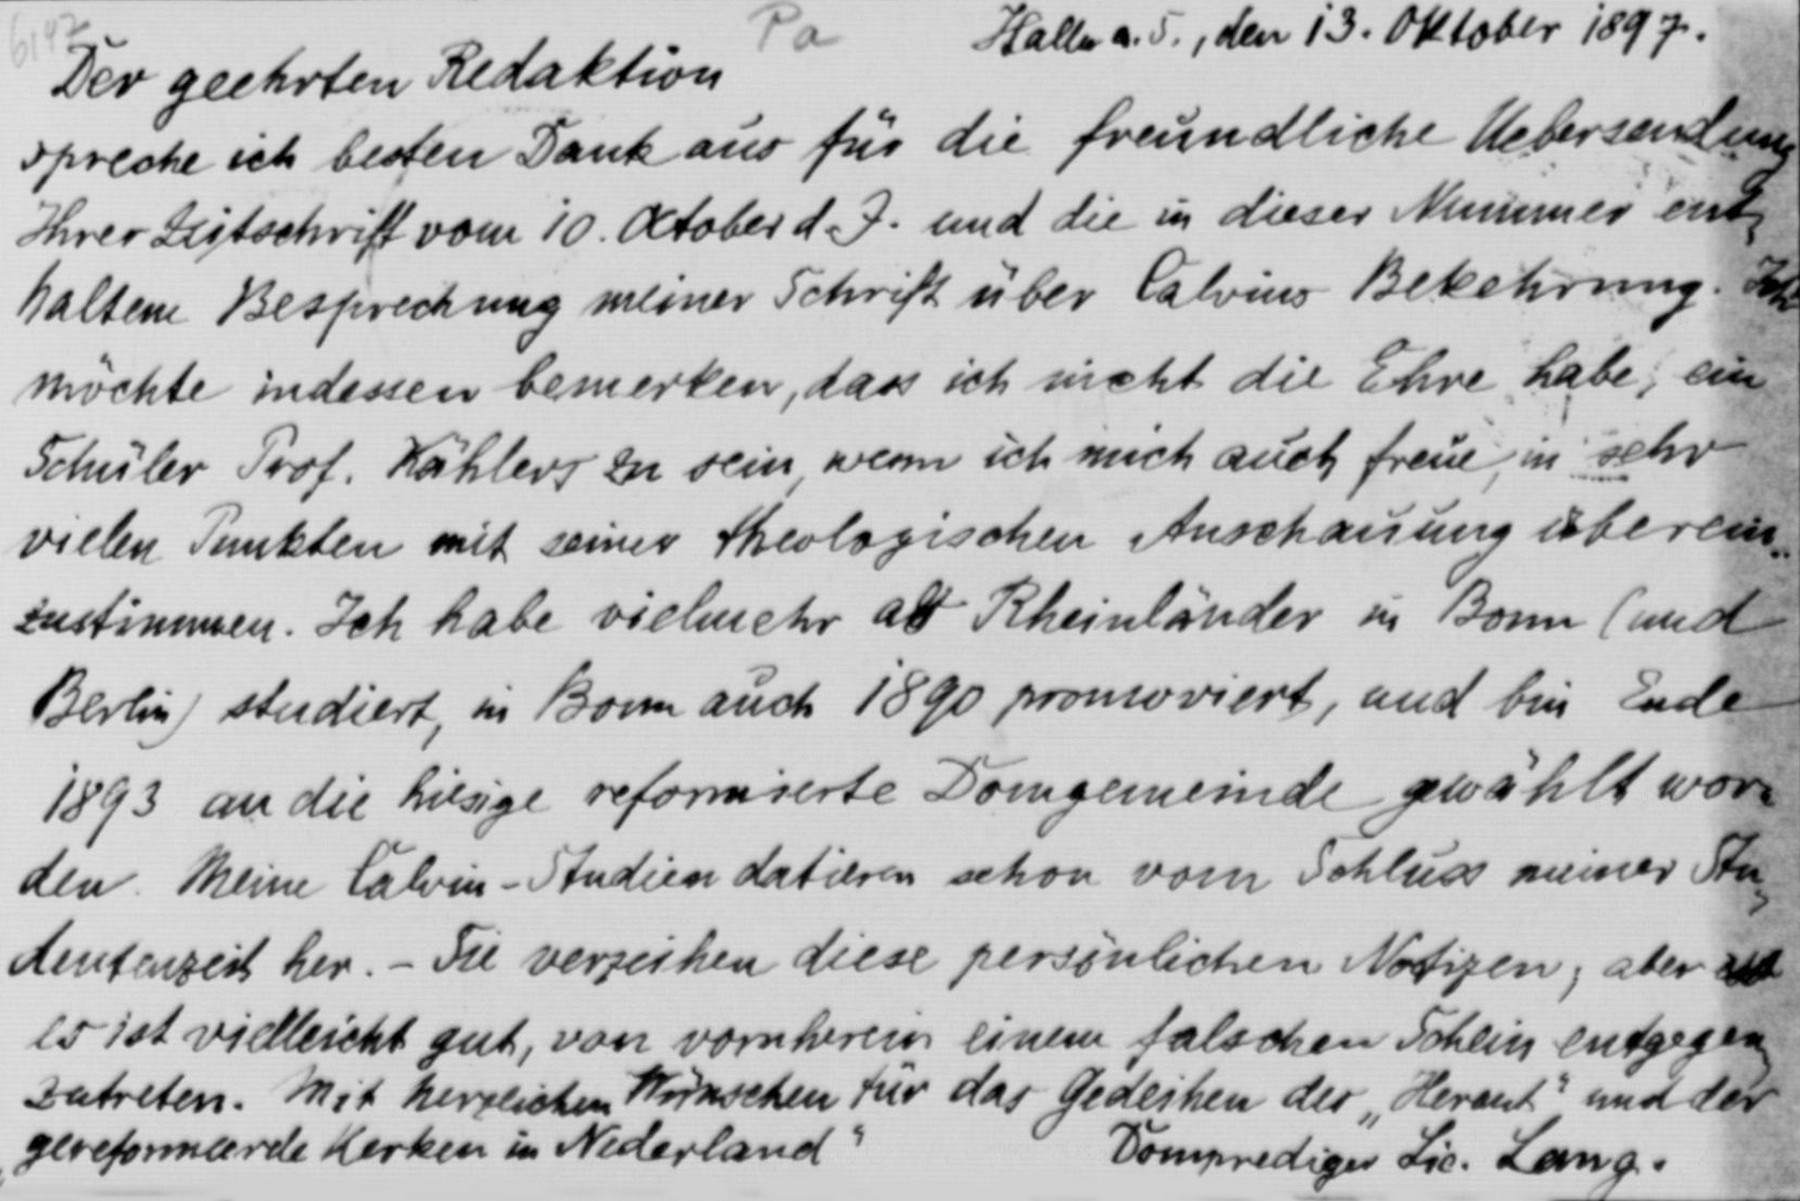 6147
Pa
Halle a. S., den 13. Oktober 1897.
Der geehrten Redaktion
spreche ich besten Dank aus für die freundliche Uebersendung
Ihrer Zeitschrift vom 10. Oktober d. J. und die in dieser Nummer ent-
haltene Besprechung meiner Schrift über Calvins Bekehrung. Ich
möchte indessen bemerken, dass ich nicht die Ehre habe, ein
Schüler Prof. Kählers zu sein, wenn ich mich auch freue, in sehr
vielen Punkten mit seiner theologischen Anschauung überein-
zustimmen. Ich habe vielmehr als Rheinländer in Bonn (und
Berlin) studiert, in Bonn auch 1890 promoviert, und bin Ende
1893 an die hiesige reformierte Domgemeinde gewählt wor-
den. Meine Calvin-Studien datieren schon vom Schluss meiner Stu-
dentenzeit her. - Sie verzeihen diese persönlichen Notizen; aber
es ist vielleicht gut, von vornherein einem falschen Schein entgegen-
zutreten. Mit herzlichen Wünschen für das Gedeihen des „Heraut“ und der
„gereformeerde Kerken in Nederland“
Domprediger Lic. Lang.